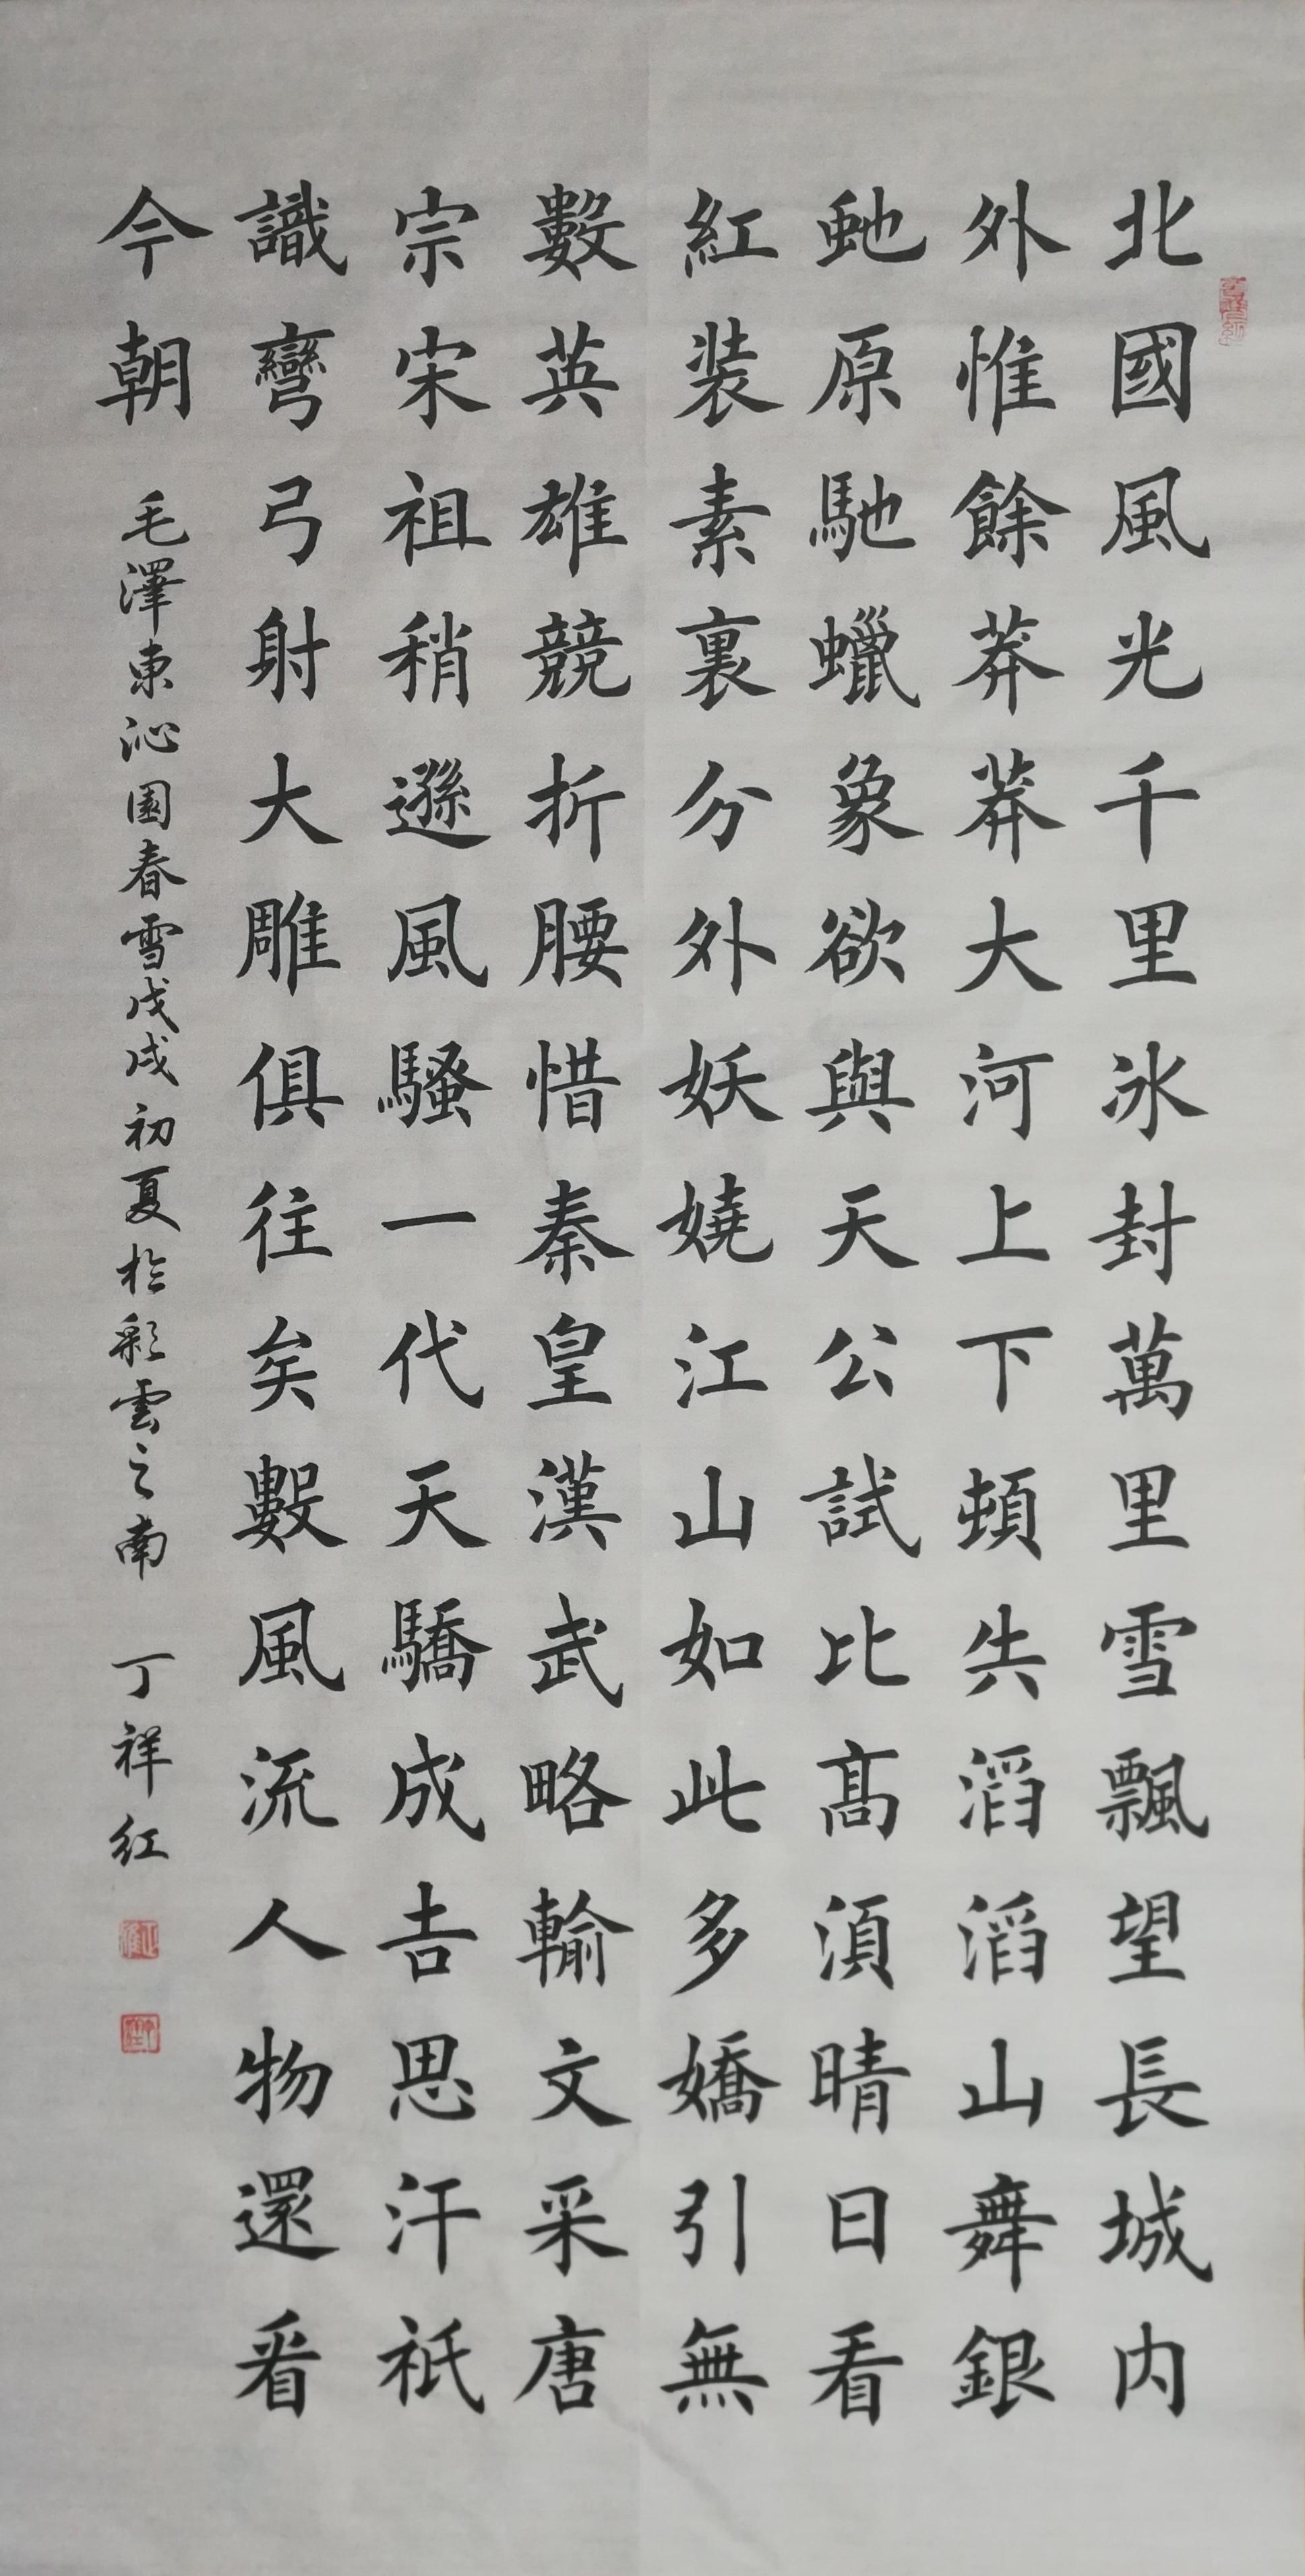 北國風光千里冰封萬里雪飄望長城内
外惟餘莽莽大河上下頓失滔滔山舞銀
虵原馳蠟象欲與天公試比髙湏晴日看
紅装素裏分外妖嬈江山如此多嬌引無
數英雄競折腰惜秦皇漢武略輸文采唐
宗宋祖稍遜風騷一代天驕成吉思汗祇
識彎弓射大雕俱往矣數風流人物還看
今朝 毛澤東沁園春雪戊戌初夏於彩雲之南 丁祥红